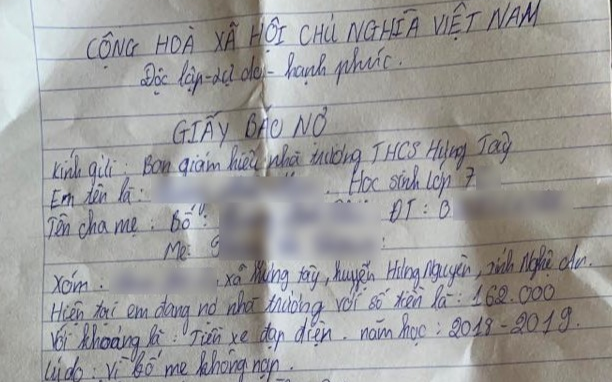 CỘNG HOÀ XÃ HỘI CHỦ NGHĨA VIỆT NAM
Độc lập - tự do - hạnh phúc.
GIẤY BÁO NỢ
Kính gửi: Ban giám hiệu nhà trường THCS Hưng Tây
Em tên là: Học sinh lớp 7
Tên cha mẹ: Bố: ĐT: 0
Mẹ: S
Xóm: , xã Hưng tây, huyện Hưng Nguyên, tỉnh Nghệ An.
Hiện tại em đang nợ nhà trường với số tiền là: 162.000
Với khoảng là: Tiền xe đạp điện. năm học: 2018-2019.
Lí do: Vì bố mẹ không nộp.